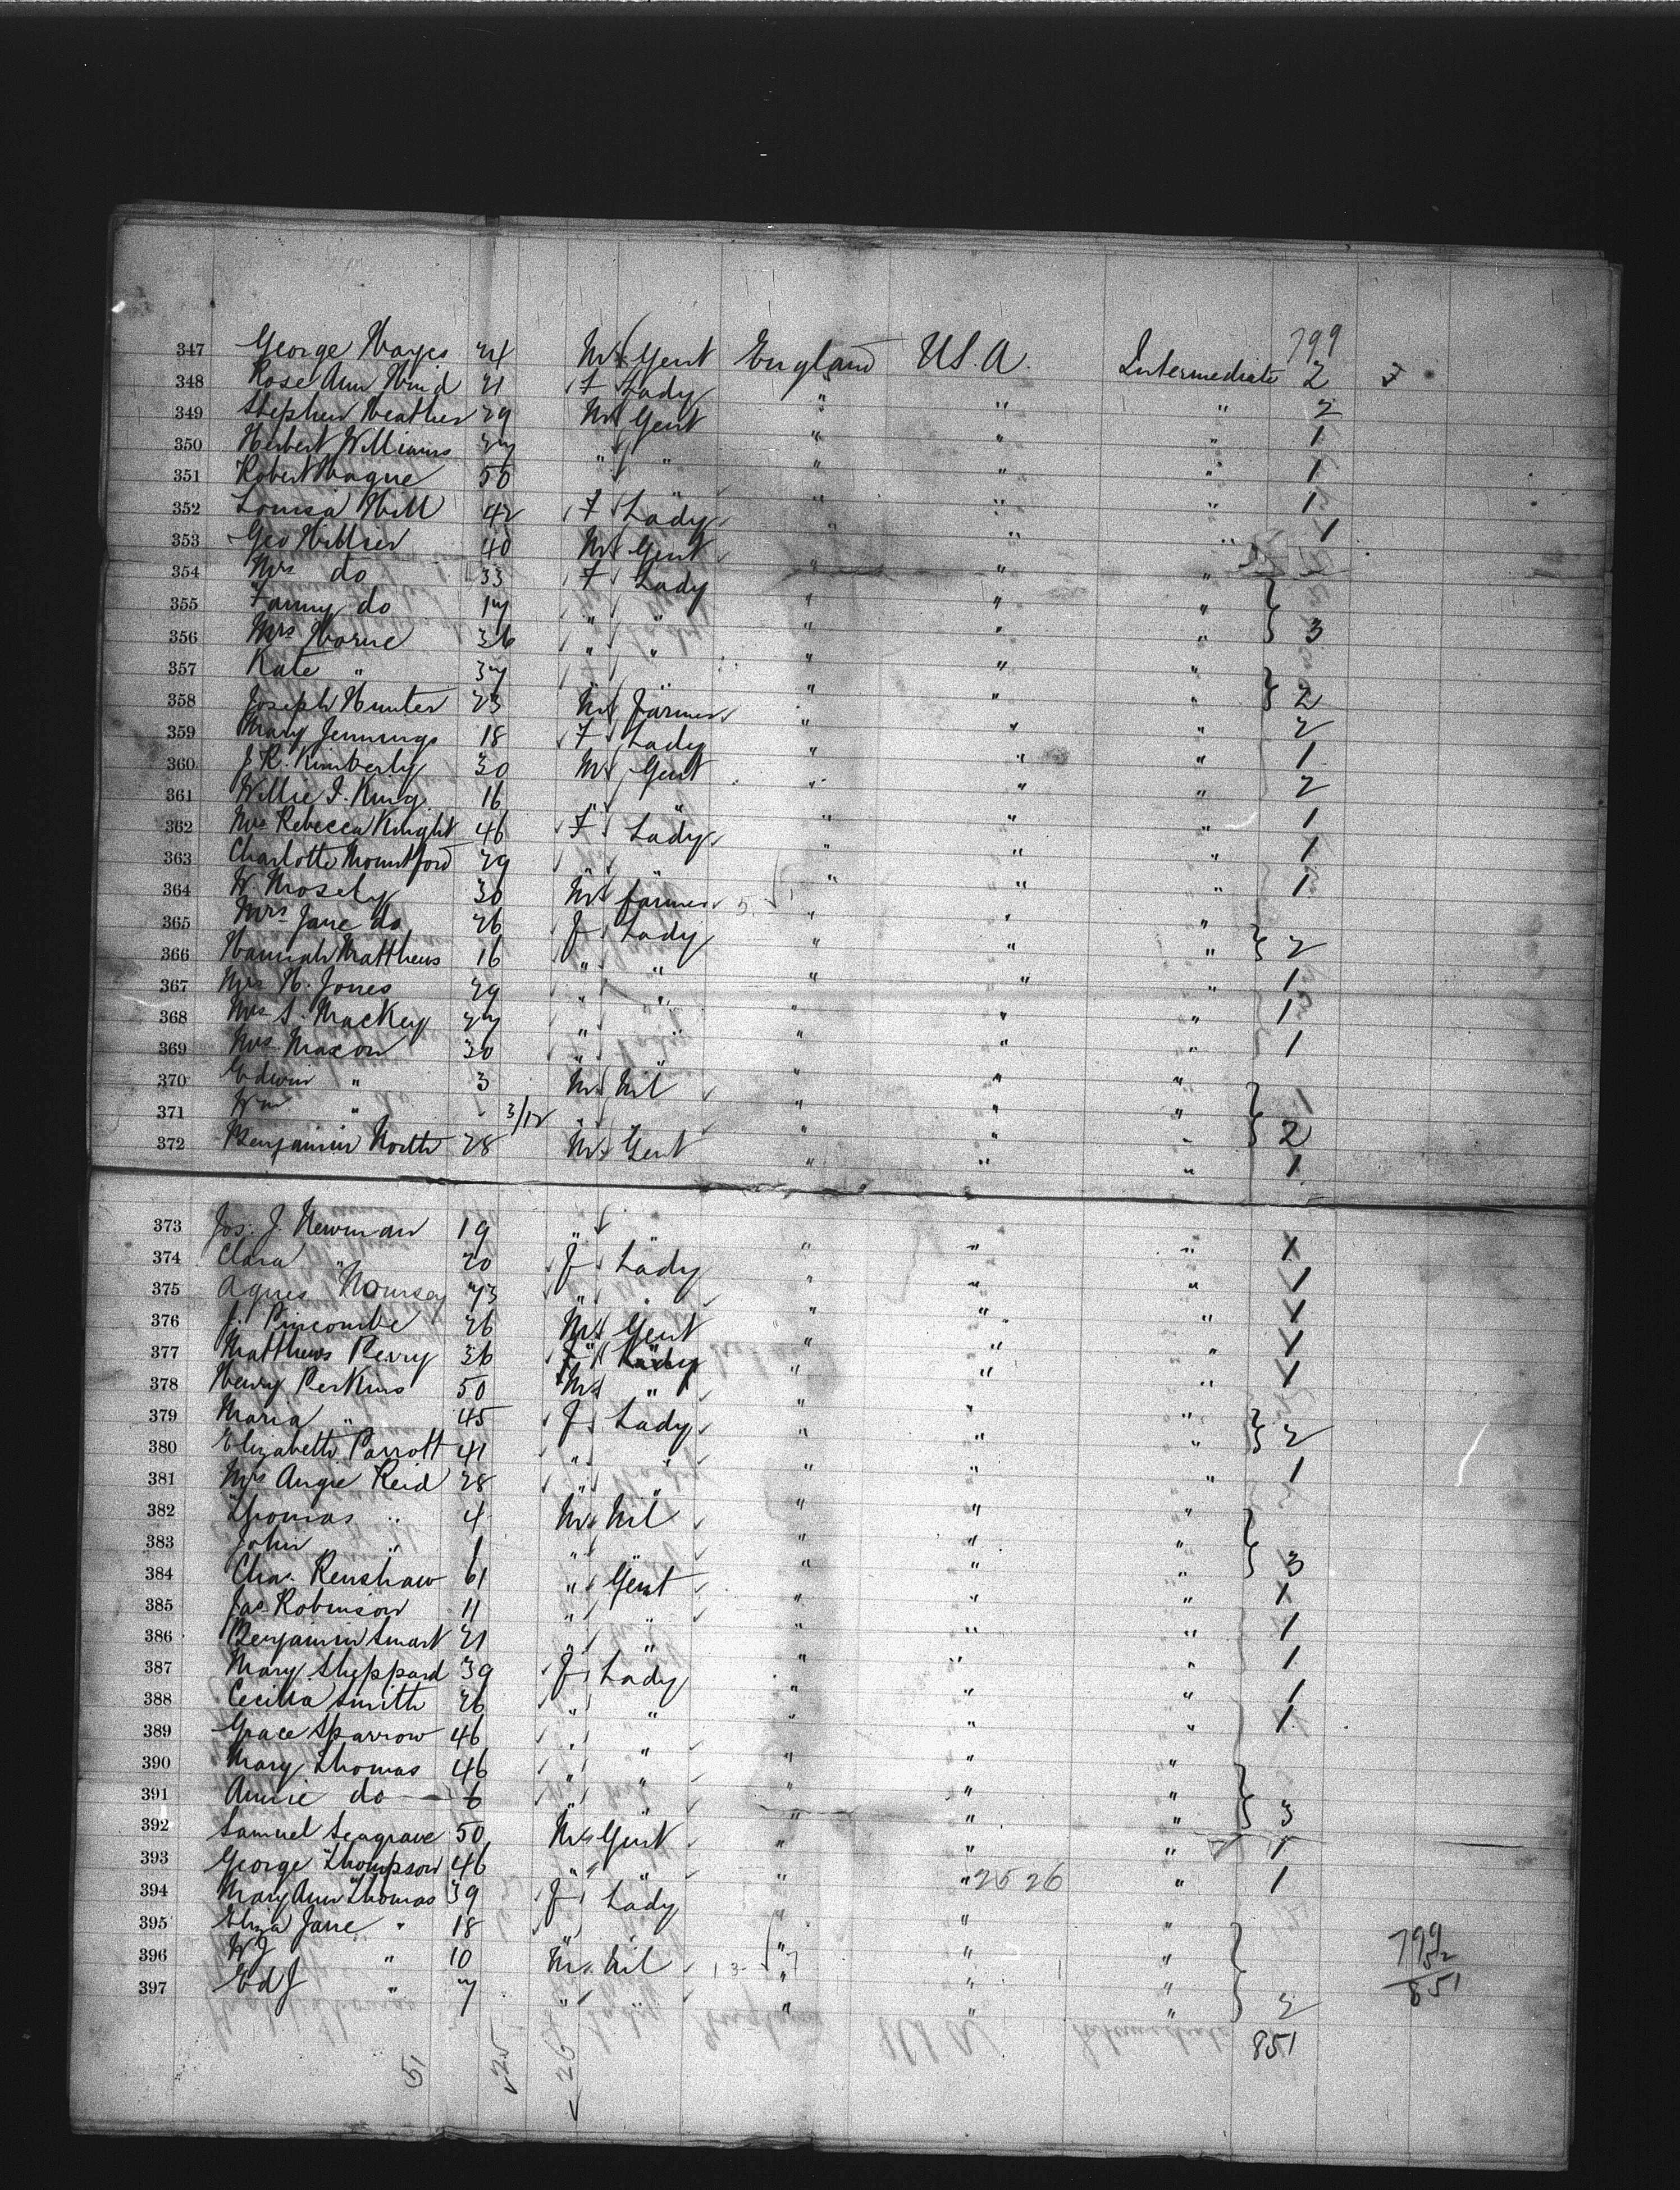 799
347 George Hayes 24 M Gent England U.S.A. Intermediate 2 7
348 Rose Ann Hind 21 F Lady " " " 2
349 Stephen Heather 29 M Gent " " " 1
350 Herbert Williams 27 " " " " " 1
351 Robert Hague 50 " " " 1
352 Louisa Hill 42 F Lady " " " 1
353 Geo Hillier 40 M Gent " " "
354 Mrs do 33 F Lady " " "
355 Fanny do 17 " " " " " 3
356 Mrs Horne 36 " " " " "
357 Kate " 37 " " " 2
358 Joseph Hunter 23 M Farmer " " " 2
359 Mary Jennings 18 F Lady " " " 1
360 J. R. Kimberly 30 M Gent " " " 2
361 Willie I. King 16 " " " " " 1
362 Mrs Rebecca Knight 46 F Lady " " " 1
363 Charlotte Mountford 29 " " " " " 1
364 W. Mosely 30 M Farmer " " "
365 Mrs Jane do 26 F Lady " " " 2
366 Hannah Matthews 16 " " " " " 1
367 Mrs H. Jones 29 " " " " " 1
368 Mrs S. Mackey 27 " " " " " 1
369 Mrs Maxon 30 " " " " "
370 Edwin " 3 M Nil " " "
371 Wm " 3/12 " " " " " 2
372 Benjamin North 28 M Gent " " " 1
373 Jos. J. Newman 19 " " " " 1
374 Clara " 20 F Lady " " " 1
375 Agnes Noursey 23 " " " " " 1
376 J. Pincombe 26 M Gent " " " 1
377 Matthews Perry 36 " " " " 1
378 Henry Perkins 50 M " " " "
379 Maria " 45 F Lady " " " 2
380 Elizabeth Parrott 41 " " " " " 1
381 Mrs Angie Reid 28 " " " " "
382 Thomas " 4 M Nil " " "
383 John " 1 " " " " " 3
384 Chas. Renshaw 61 " Gent " " " 1
385 Jas Robinson 11 " " " " " 1
386 Benjamin Smart 21 " " " " " 1
387 Mary Sheppard 39 F Lady " " " 1
388 Cecilia Smith 26 " " " " " 1
389 Grace Sparrow 46 " " " " "
390 Mary Thomas 46 " " " " "
391 Annie do 6 " " " " " 3
392 Samuel Seagrave 50 M Gent " " " 1
393 George Thompson 46 " " " " 25 26 " 1
394 Mary Ann Thomas 39 F Lady " "
395 Eliza Jane " 18 " " " "
396 W J " 10 M Nil " " "
397 Ed J " 7 " " " " " 2
799
52
851
851
51
25
26